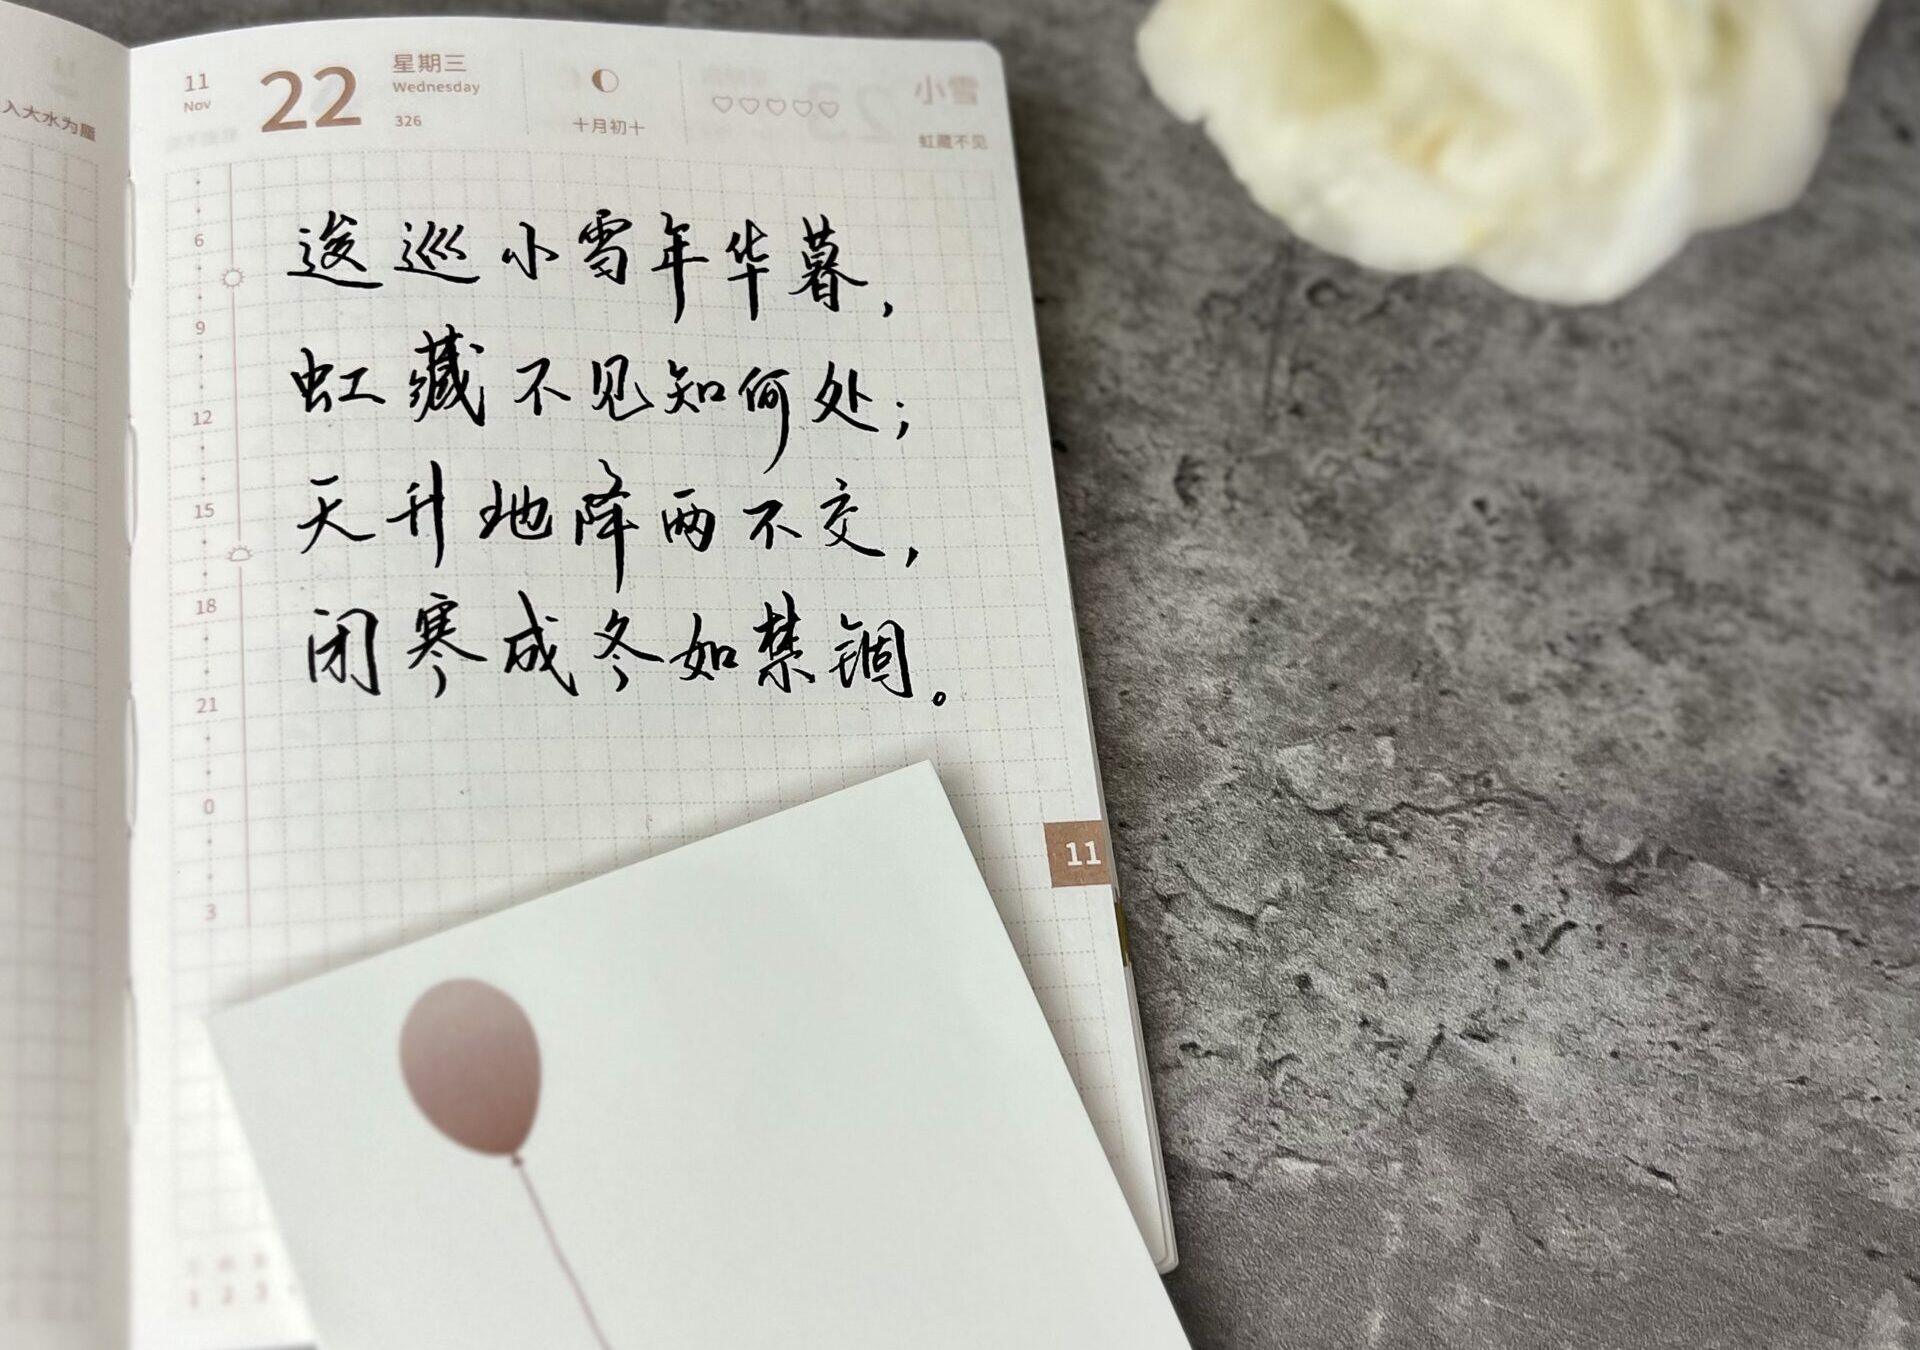 入大水为蜃
11
Nov
22
星期三
Wednesday
326
十月初十
小雪
虹藏不见
6
9
12
15
18
21
0
3
逡巡小雪年华暮，
虹藏不见知何处；
天升地降两不交，
闭寒成冬如禁锢。
11
1 2 3